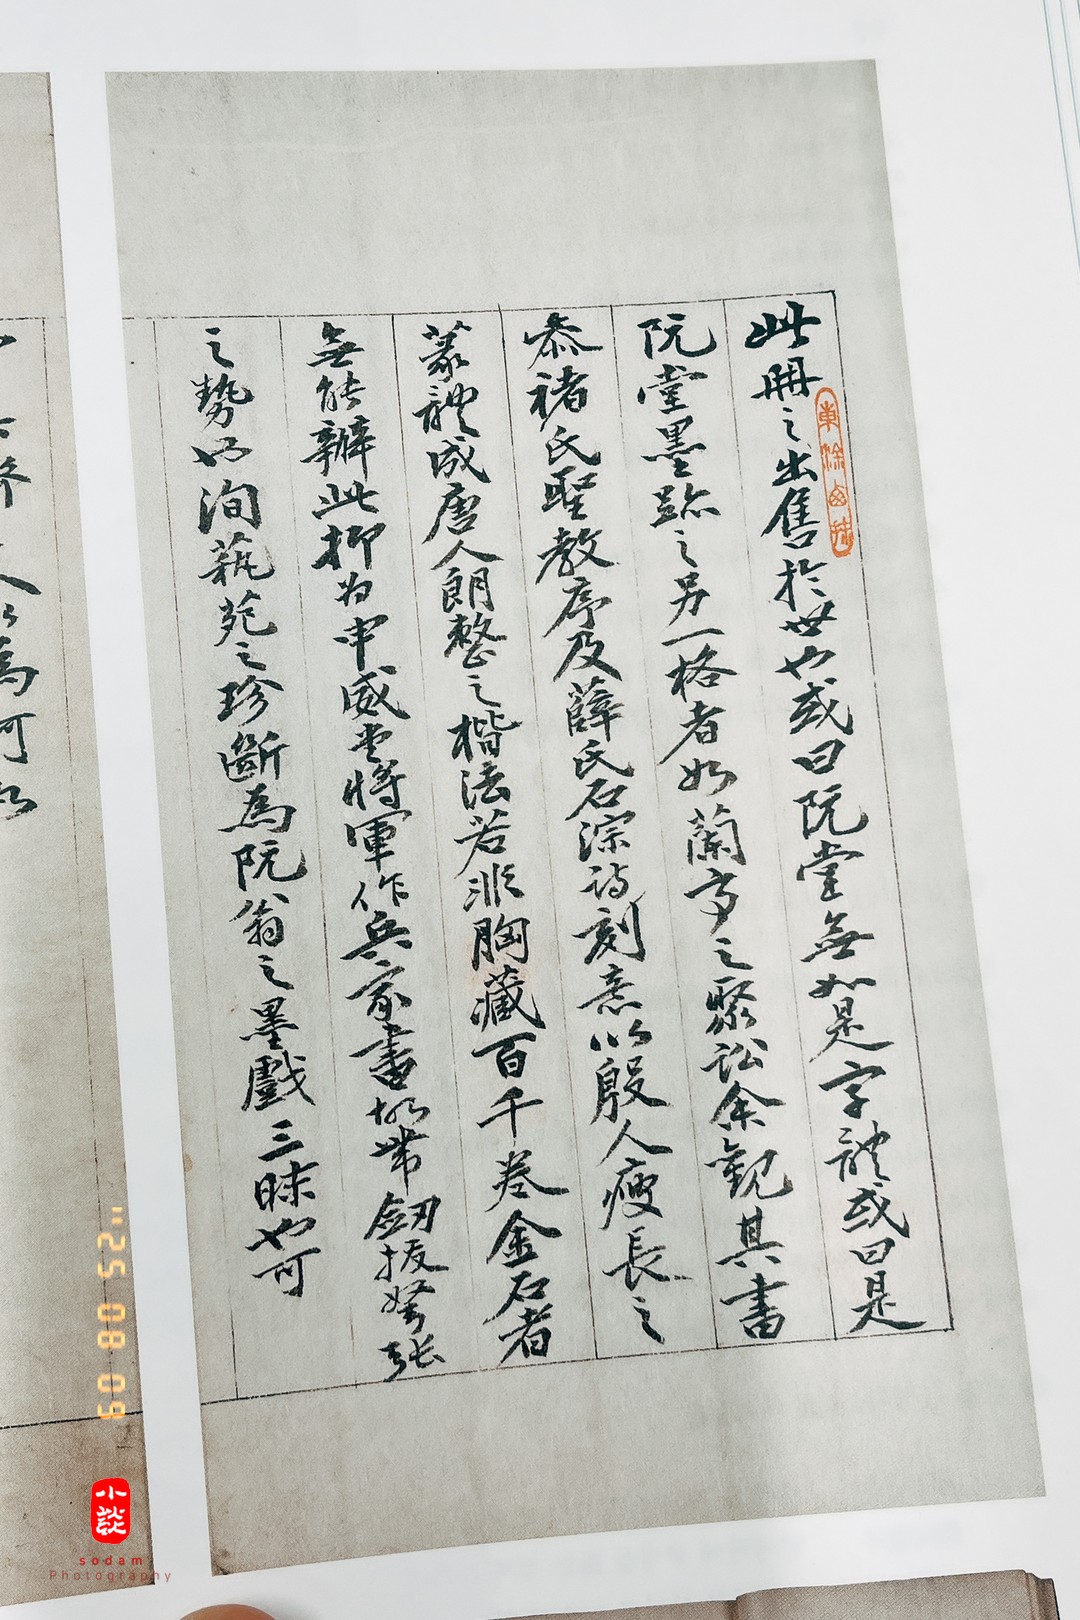 此冊之出售於世也或曰阮堂無如是字體或曰是
阮堂墨跡之另一格者如蘭亭之聚訟余觀其書
叅褚氏聖教序及薛氏石淙詩刻意以殷人瘦長之
篆體成唐人朗整之楷法若非胸藏百千卷金石者
無能辦此抑為申威堂將軍作兵家書故帶劒拔弩張
之勢也洵蓺苑之珍斷為阮翁之墨戲三昧也可
為可
小談
sodam
Photography
09 08 25 11